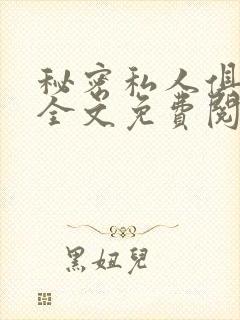 秘密私人俱
全文免費閱
黑妞兒